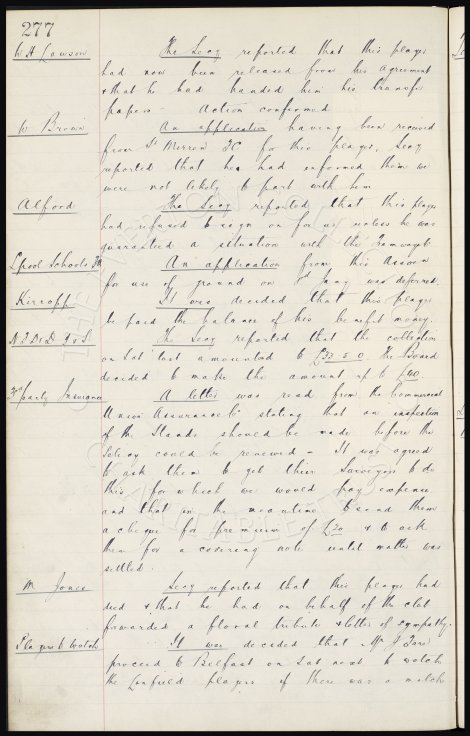 277
W H Lawson The Secy reported that this player
had now been released from his agreement
& that he had handed him his transfer
papers - Action confirmed
W Brown An application having been received
from St Mirren FC for this player, Secy
reported that he had informed them we
were not likely to part with him
Alford The Secy reported that this player
had refused to sign on for us unless he was
guaranteed a situation with the Tramways
Lpool Schools FA An application from this Assocn
for use of ground on 1st Jany was deferred.
Kirsopp It was decided that this player
be paid the balance of his benefit money.
The Secy reported that the collection
on Sat last amounted to £33.5.0. The Board
decided to make the amount up to £40
3rd party Insurance A letter was read from the Commercial
Union Assurance Co stating that an inspection
of the Stands should be made before the
Policy could be renewed - It was agreed
to ask them to get their Surveyors to do
this for which we would pay expenses
and that in the meantime to send them
a cheque for premium of £20 & to ask
them for a covering note until matter was
settled.
M Jones Secy reported that this player had
died & that he had on behalf of the club
forwarded a floral tribute & letter of sympathy.
Players to Watch It was decided that Mr J
proceed to Belfast on Sat next to watch
the Linfield players if there was a match